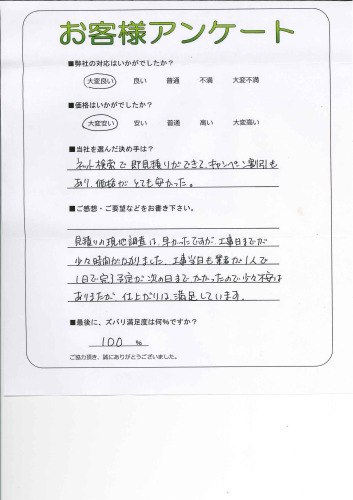 お客様アンケート
■弊社の対応はいかがでしたか?
大変良い 良い 普通 不満 大変不満
■価格はいかがでしたか?
大変安い 安い 普通 高い 大変高い
■当社を選んだ決め手は?
ネット検索で即見積りができて、キャンペーン割引も
あり、価格がとても安かった。
■ご感想・ご要望などをお書き下さい。
見積りの現地調査は、早かったですが、工事日までが
少々時間がかかりました。工事当日も業者が1人で
1日で完了予定が次の日までかかったので少々不安は
ありまたが、仕上がりは、満足しています。
■最後に、ズバリ満足度は何%ですか?
100 %
ご協力頂き、誠にありがとうございました。